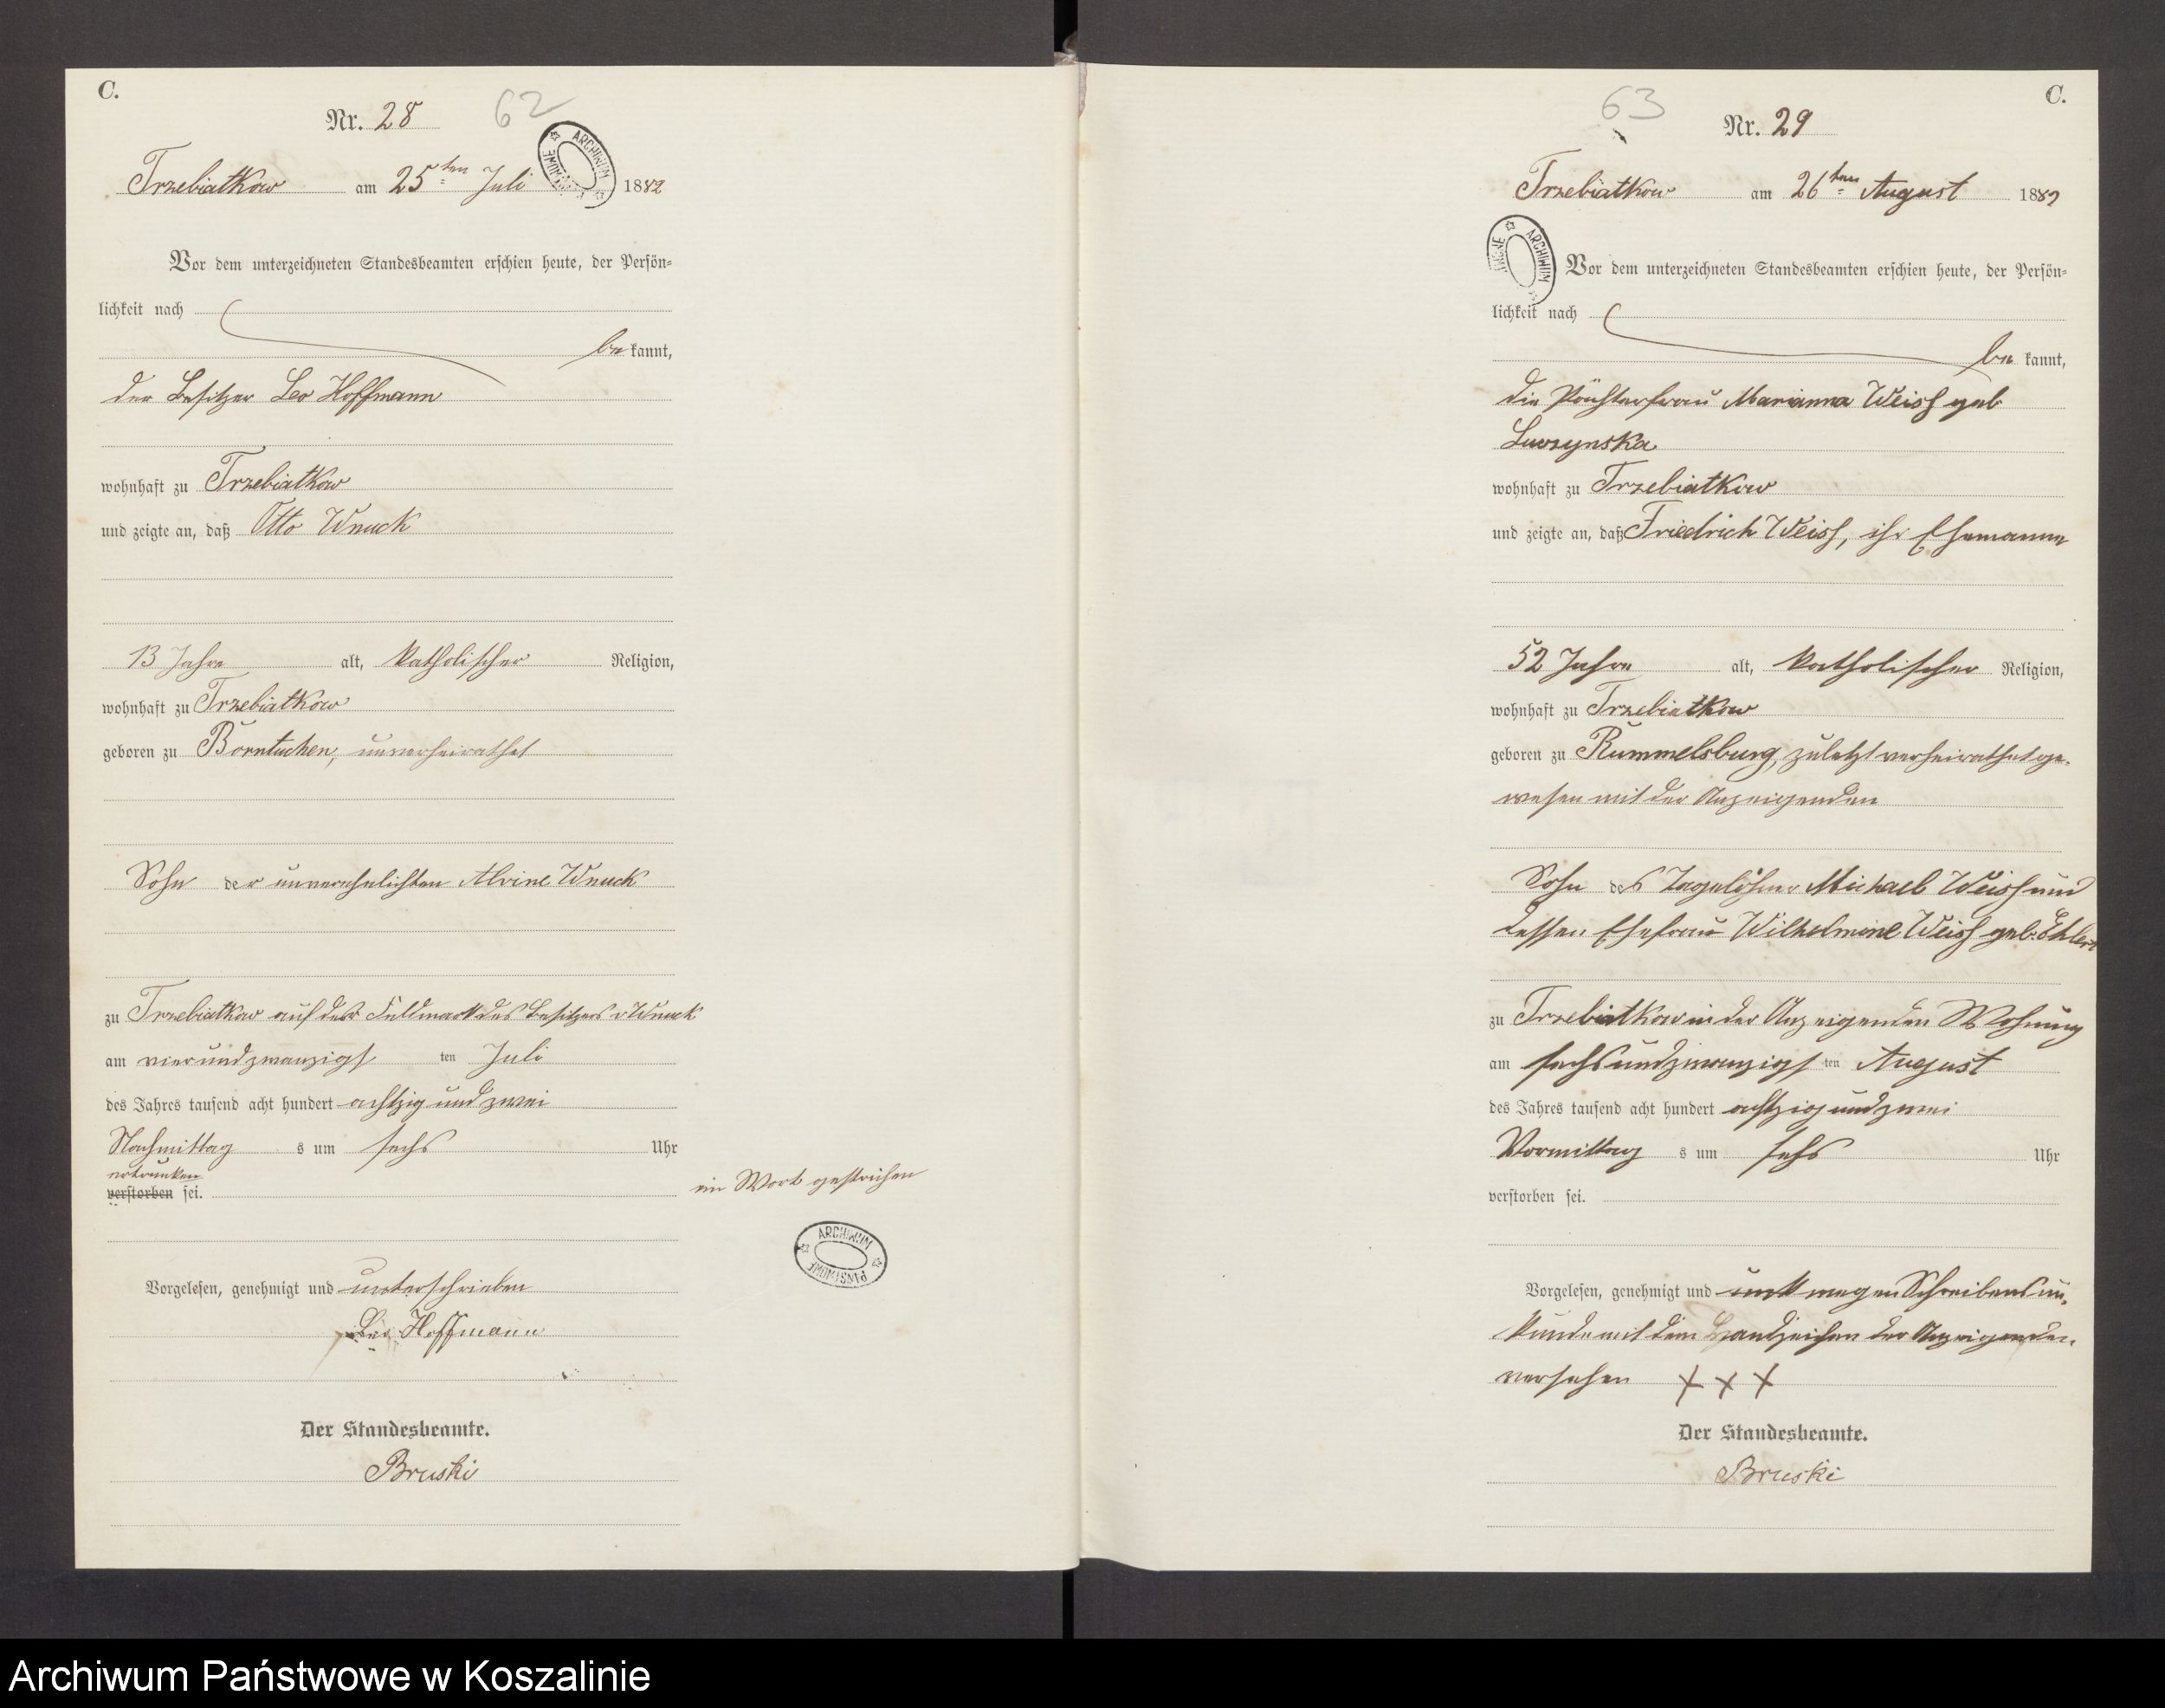 C.
Nr. 28
62
ARCHIWUM
Trzebiatkow am 25ten Juli 1882
Vor dem unterzeichneten Standesbeamten erschien heute, der Persön-
lichkeit nach
be kannt,
der Besitzer Leo Hoffmann
wohnhaft zu Trzebiatkow
und zeigte an, daß Otto Wnuck
13 Jahre alt, katholischer Religion,
wohnhaft zu Trzebiatkow
geboren zu Borntuchen, unverheirathet
Sohn der unverehelichten Alvine Wnuck
zu Trzebiatkow auf der Feldmark des Besitzers v Wnuck
am vierundzwanzigst ten Juli
des Jahres tausend acht hundert achtzig und zwei
Nachmittag s um sechs Uhr
ertrunken
verstorben sei.
ein Wort gestrichen
ARCHIWUM PAŃSTWOWE
Vorgelesen, genehmigt und unterschrieben
Leo Hoffmann
Der Standesbeamte.
Bruski
C.
63
Nr. 29
Trzebiatkow am 26ten August 1882
ARCHIWUM
Vor dem unterzeichneten Standesbeamten erschien heute, der Persön-
lichkeit nach
be kannt,
die Pächterfrau Marianna Weiss geb
wohnhaft zu Trzebiatkow
und zeigte an, daß Friedrich Weiss, ihr Ehemann
52 Jahre alt, katholischer Religion,
wohnhaft zu Trzebiatkow
geboren zu Rummelsburg, zuletzt verheirathet ge-
wesen mit der Anzeigenden
Sohn des Tagelöhner Michael Weiss und
dessen Ehefrau Wilhelmine Weiss geb. Ehlert
zu Trzebiatkow in der Anzeigenden Wohnung
am sechsundzwanzigst ten August
des Jahres tausend acht hundert achtzig und zwei
Vormittag s um sechs Uhr
verstorben sei.
Vorgelesen, genehmigt und wegen Schreibensun-
kunde mit dem Handzeichen der Anzeigenden
versehen XXX
Der Standesbeamte.
Bruski
Archiwum Państwowe w Koszalinie